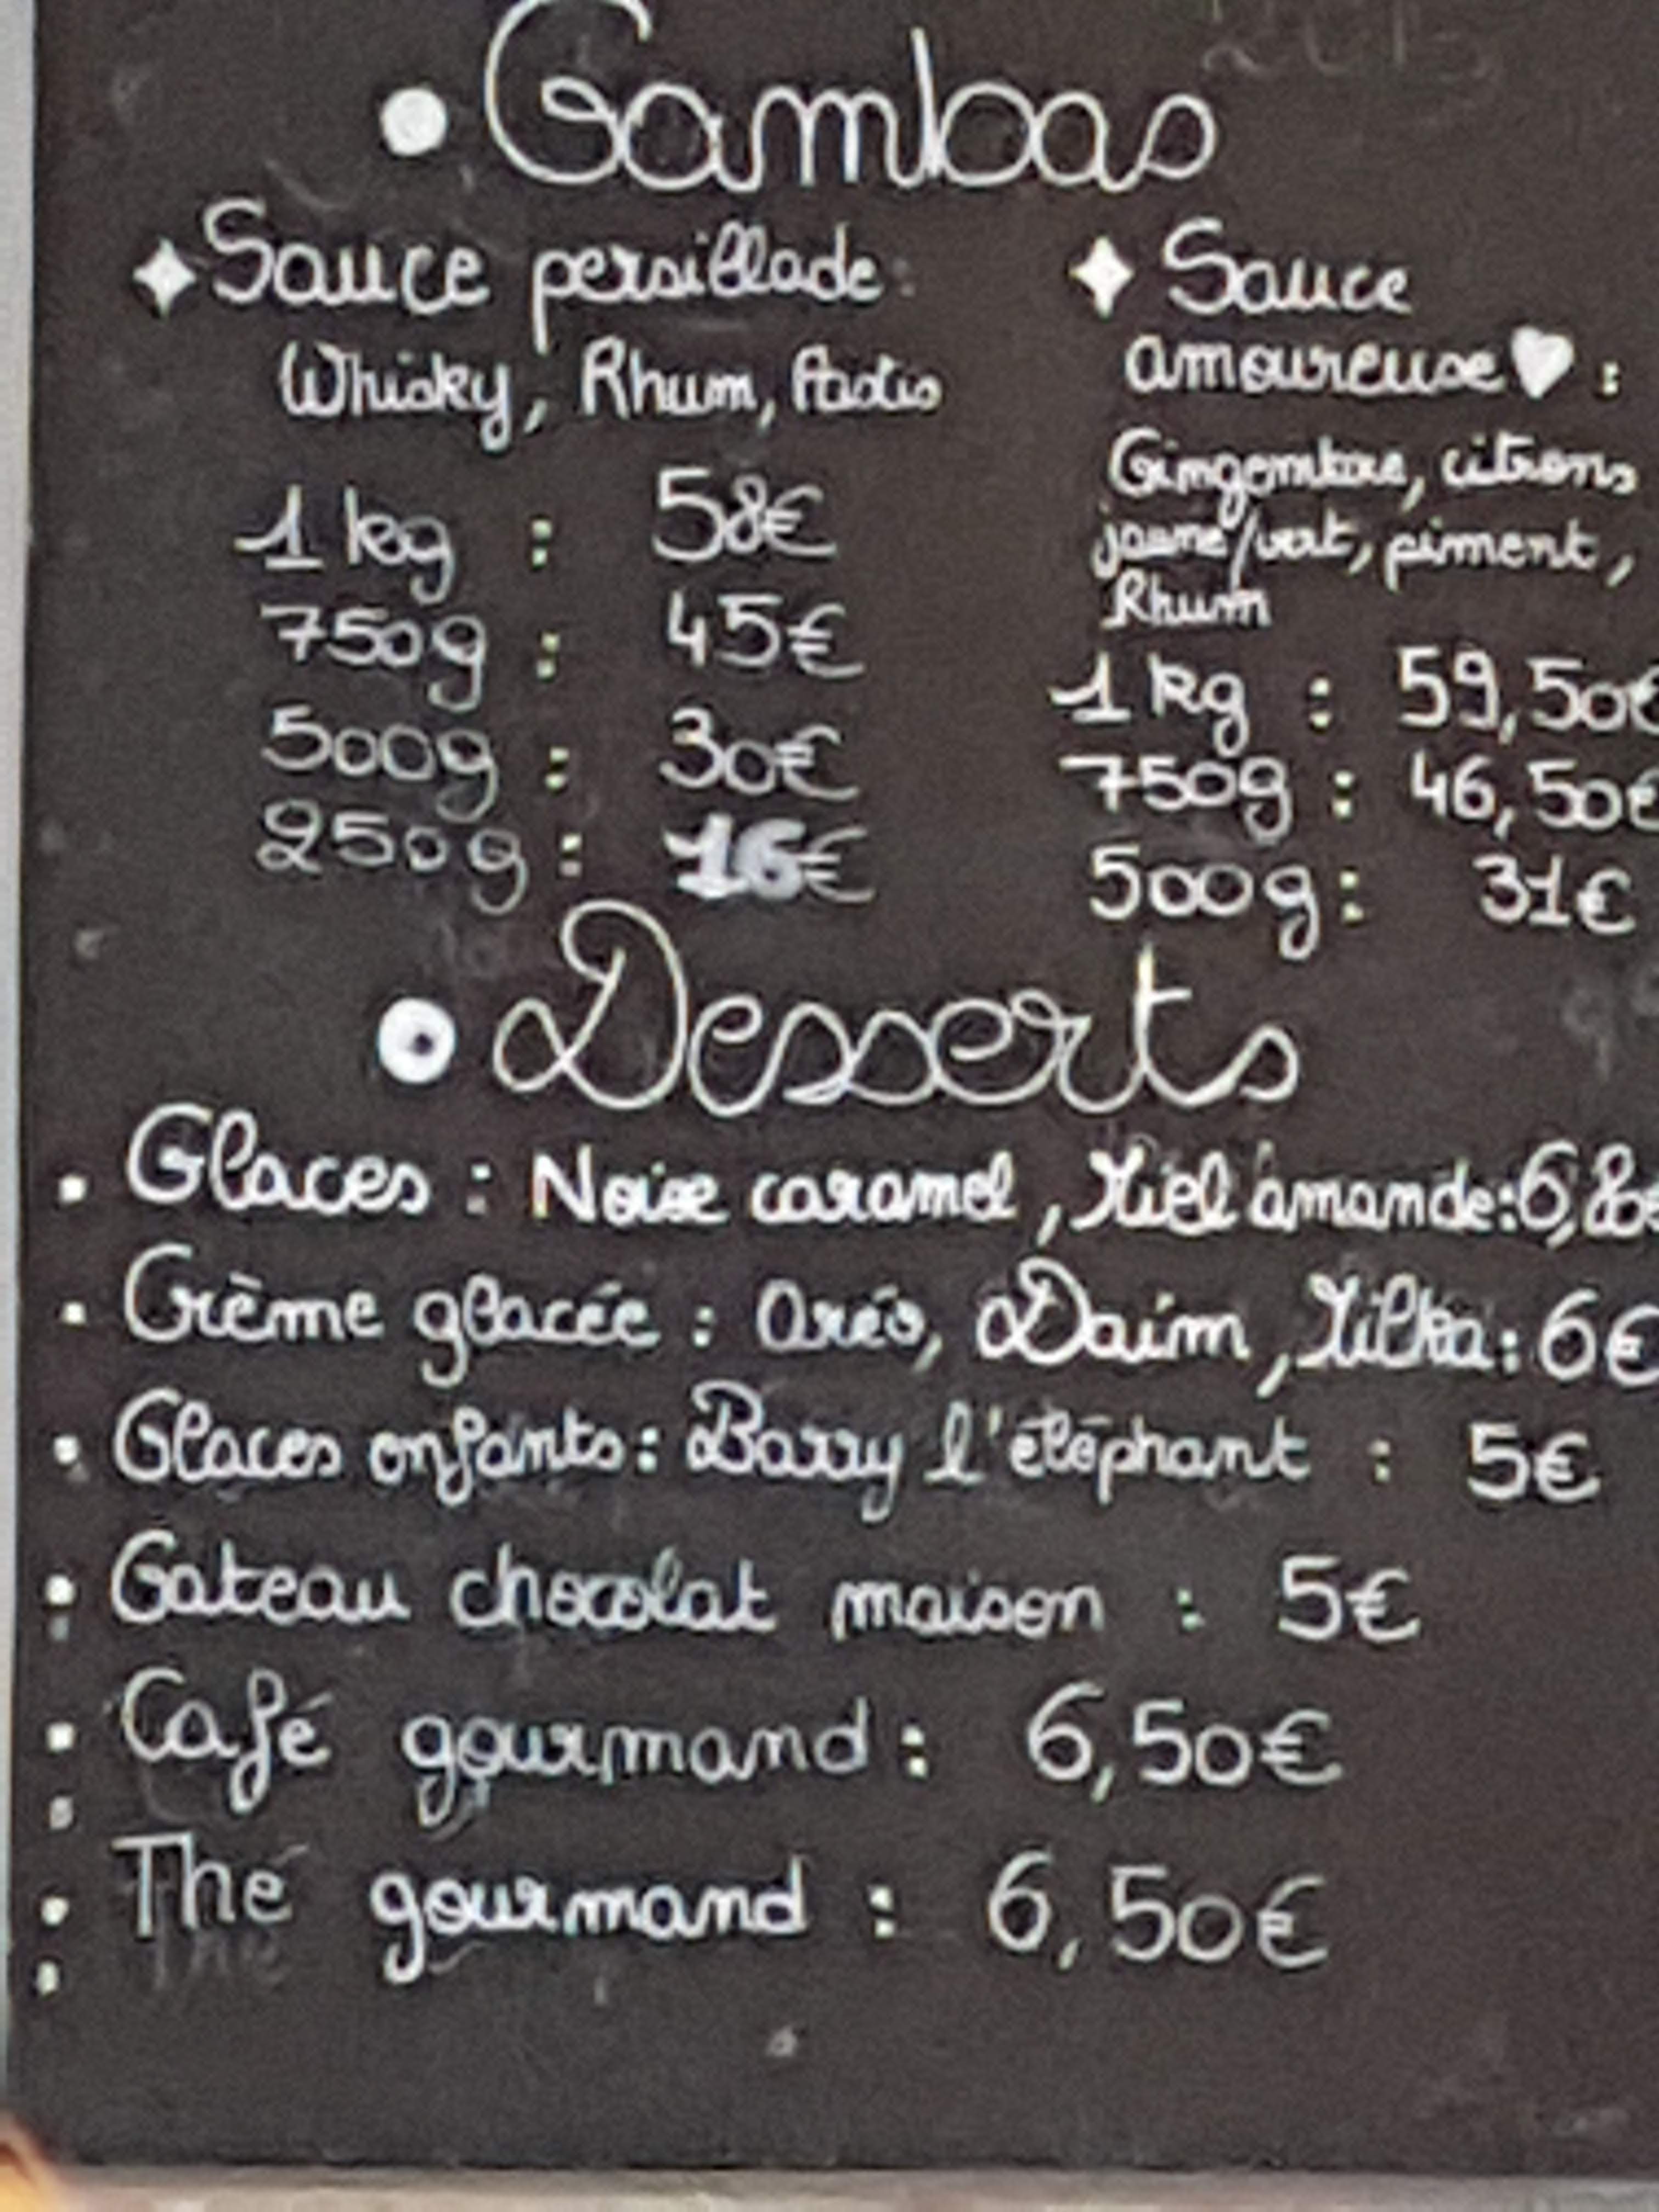 • Gambas
✦ Sauce persillade :
Whisky, Rhum, Pastis
1 kg : 58€
750g : 45€
500g : 30€
250g : 16€
✦ Sauce
amoureuse ♥ :
Gingembre, citrons
jaune/vert, piment,
Rhum
1 kg : 59,50€
750g : 46,50€
500g : 31€
• Desserts
• Glaces : Noix caramel, Miel amande : 6,80€
• Crème glacée : Oréo, Daim, Milka : 6€
• Glaces enfants : Barry l'éléphant : 5€
• Gateau chocolat maison : 5€
• Café gourmand : 6,50€
• Thé gourmand : 6,50€